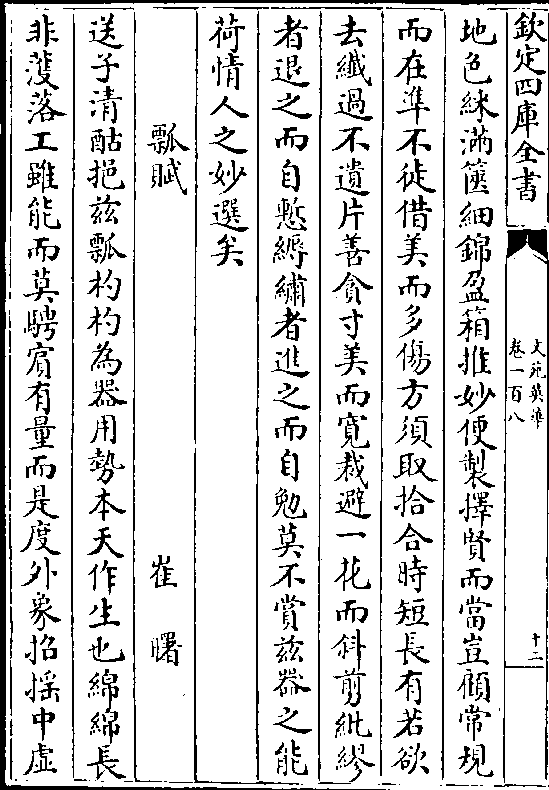 欽定四庫全書
文苑英華
卷一百八
十二
地色綵滿篋細錦盈箱推妙便製擇賢而當豈頋常規
而在準不徒借美而多傷方須取拾合時短長有若欲
去纖過不遺片善貪寸美而寛裁避一花而斜剪紕繆
者退之而自慙縟繡者進之而自勉莫不賞兹器之能
荷情人之妙選矣
瓢賦 崔曙
送子清酤挹兹瓢杓杓為器用勢本天作生也綿綿長
非濩落工雖能而莫騁賔有量而是度外象招摇中虚